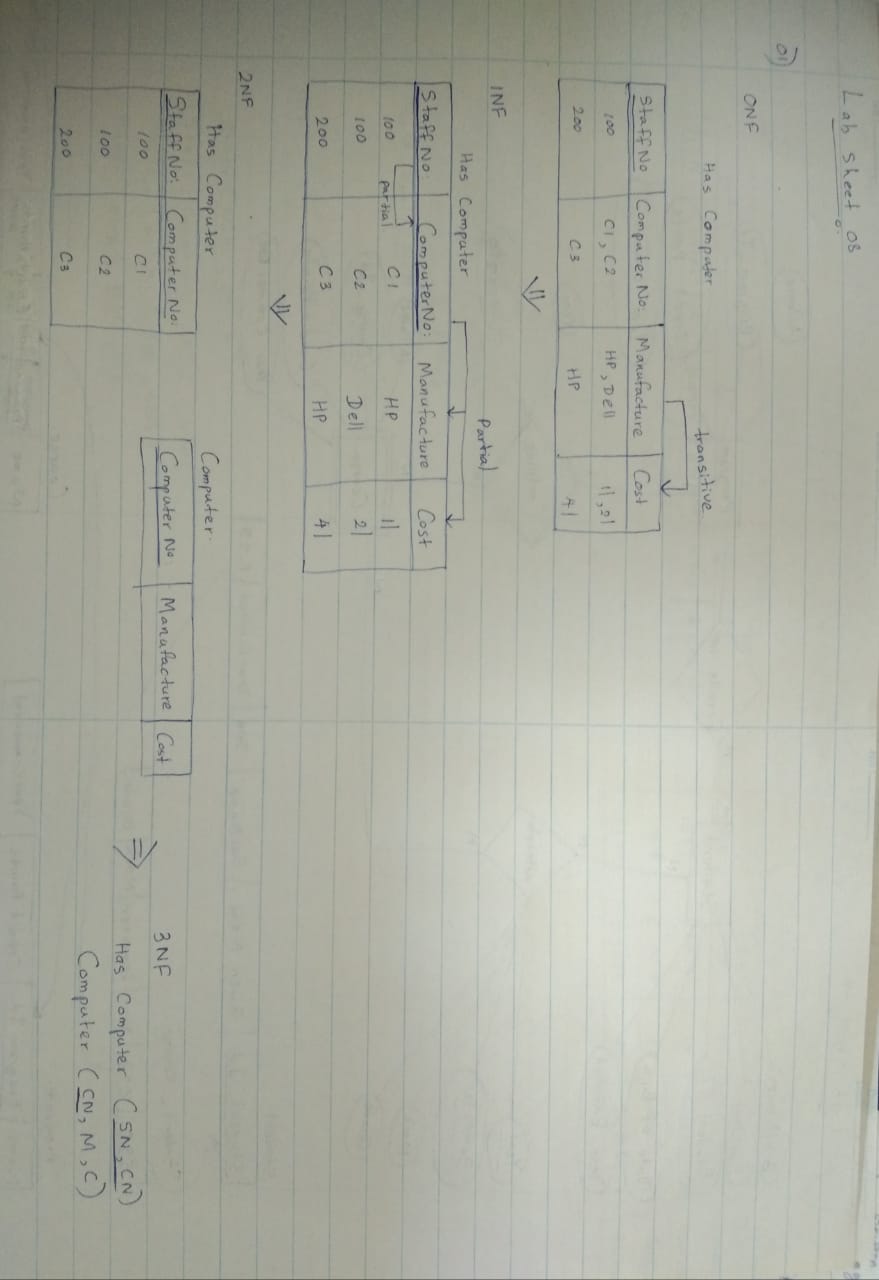 Lab Sheet 03
01)
0NF
Has Computer
transitive
Staff No Computer No: Manufacture Cost
100 C1, C2 HP, Dell 11, 21
200 C3 HP 41
1NF
Has Computer
Partial
Staff No: Computer No: Manufacture Cost
100 C1 HP 11
partial
100 C2 Dell 21
200 C3 HP 41
2NF
Has Computer
Staff No: Computer No:
100 C1
100 C2
200 C3
Computer
Computer No Manufacture Cost
3NF
Has Computer (SN, CN)
Computer (CN, M, C)